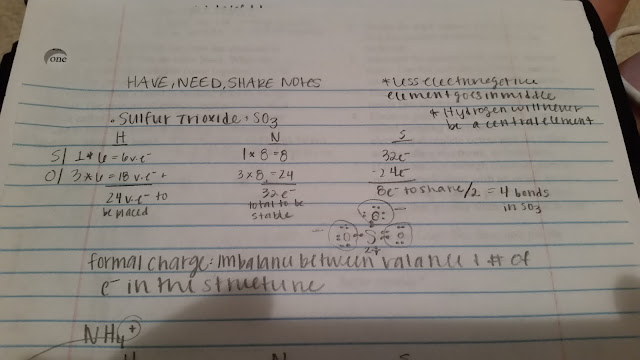 one
HAVE, NEED, SHARE NOTES
* less electronegative
element goes in middle
* Hydrogen will never
be a central element
• Sulfur Trioxide • SO3
H N S
S| 1 * 6 = 6 v.e⁻ 1 * 8 = 8 32e⁻
O| 3 * 6 = 18 v.e⁻ + 3 * 8 = 24 - 24e⁻
24 v.e⁻ to 32 e⁻ 8e⁻ to share/2 = 4 bonds
be placed total to be in SO3
stable
O
O S O
2+
formal charge: imbalance between valance & # of
e⁻ in the structure
NH4+
H N S